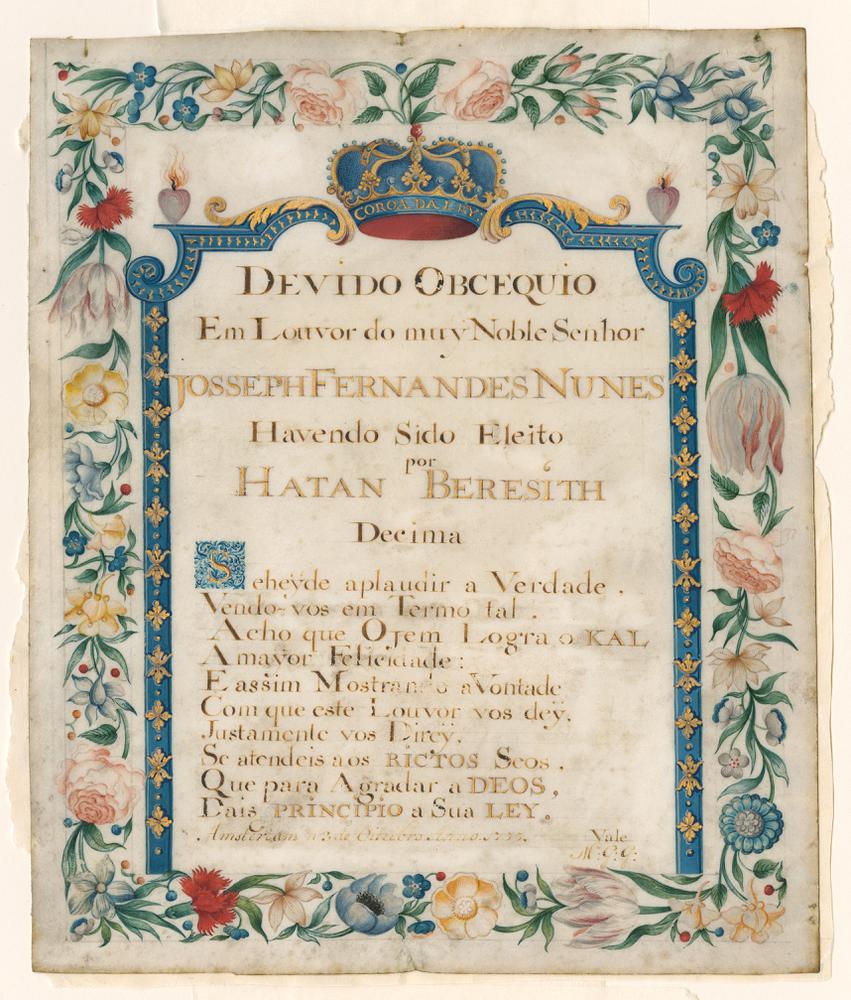 COROA DA LEY.
DEVIDO OBCEQUIO
Em Louvor do muy Noble Senhor
JOSSEPH FERNANDES NUNES
Havendo Sido Eleito
por
HATAN BERESITH
Decima
Seheyde aplaudir a Verdade,
Vendo-vos em Termo tal.
Acho que Ojem Logra o KAL
A mayor Felicidade:
E assim Mostrando a Vontade
Com que este Louvor vos dey,
Justamente vos Direy,
Se atendeis aos RICTOS Seos,
Que para Agradar a DEOS,
Dais PRINCIPIO a Sua LEY.
Amsterdam 3 de Anno
Vale
M: G: G: